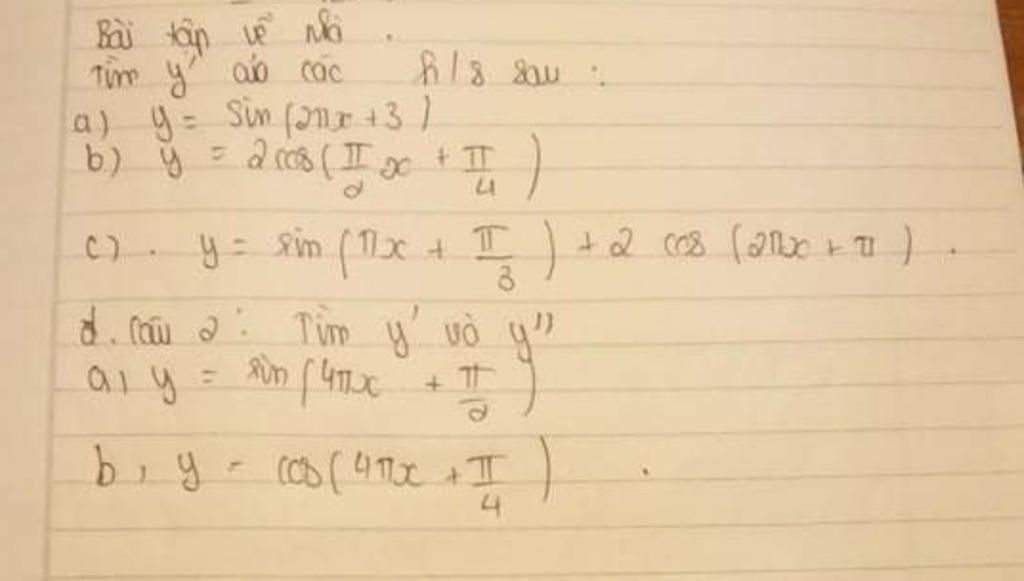 Bài tập về nhà .
Tìm y' của các h/s sau :
a) y = sin (2πx + 3)
b) y = 2 cos ( π/2 x + π/4 )
c) . y = sin ( πx + π/3 ) + 2 cos (2πx + π ) .
Câu 2 : Tìm y' và y''
a, y = sin ( 4πx + π/2 )
b, y = cos ( 4πx + π/4 ) .